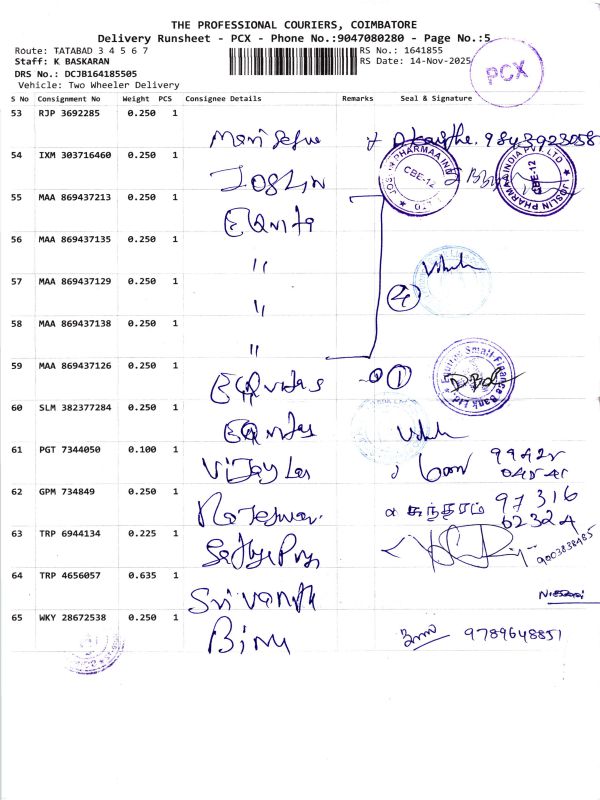 THE PROFESSIONAL COURIERS, COIMBATORE
Delivery Runsheet - PCX - Phone No.:9047080280 - Page No.:5
Route: TATABAD 3 4 5 6 7
RS No.: 1641855
Staff: K BASKARAN
RS Date: 14-Nov-2025
DRS No.: DCJB164185505
Vehicle: Two Wheeler Delivery
PCX
S No Consignment No Weight PCS Consignee Details Remarks Seal & Signature
53 RJP 3692285 0.250 1
54 IXM 303716460 0.250 1 JOSLIN
JOSLIN PHARMAA INDIA PVT LTD
CBE-12
JOSLIN PHARMAA INDIA PVT LTD
CBE-12
55 MAA 869437213 0.250 1 EQuita
56 MAA 869437135 0.250 1 "
57 MAA 869437129 0.250 1 " 4
58 MAA 869437138 0.250 1 "
59 MAA 869437126 0.250 1 EQuitas 1
Equitas Small Finance Bank Ltd
60 SLM 382377284 0.250 1 EQuitas
61 PGT 7344050 0.100 1 Vijay
62 GPM 734849 0.250 1 சுந்தரம் 97316
62324
63 TRP 6944134 0.225 1 Sathya 9003838485
64 TRP 4656057 0.635 1
65 WKY 28672538 0.250 1 Binu 9789648851